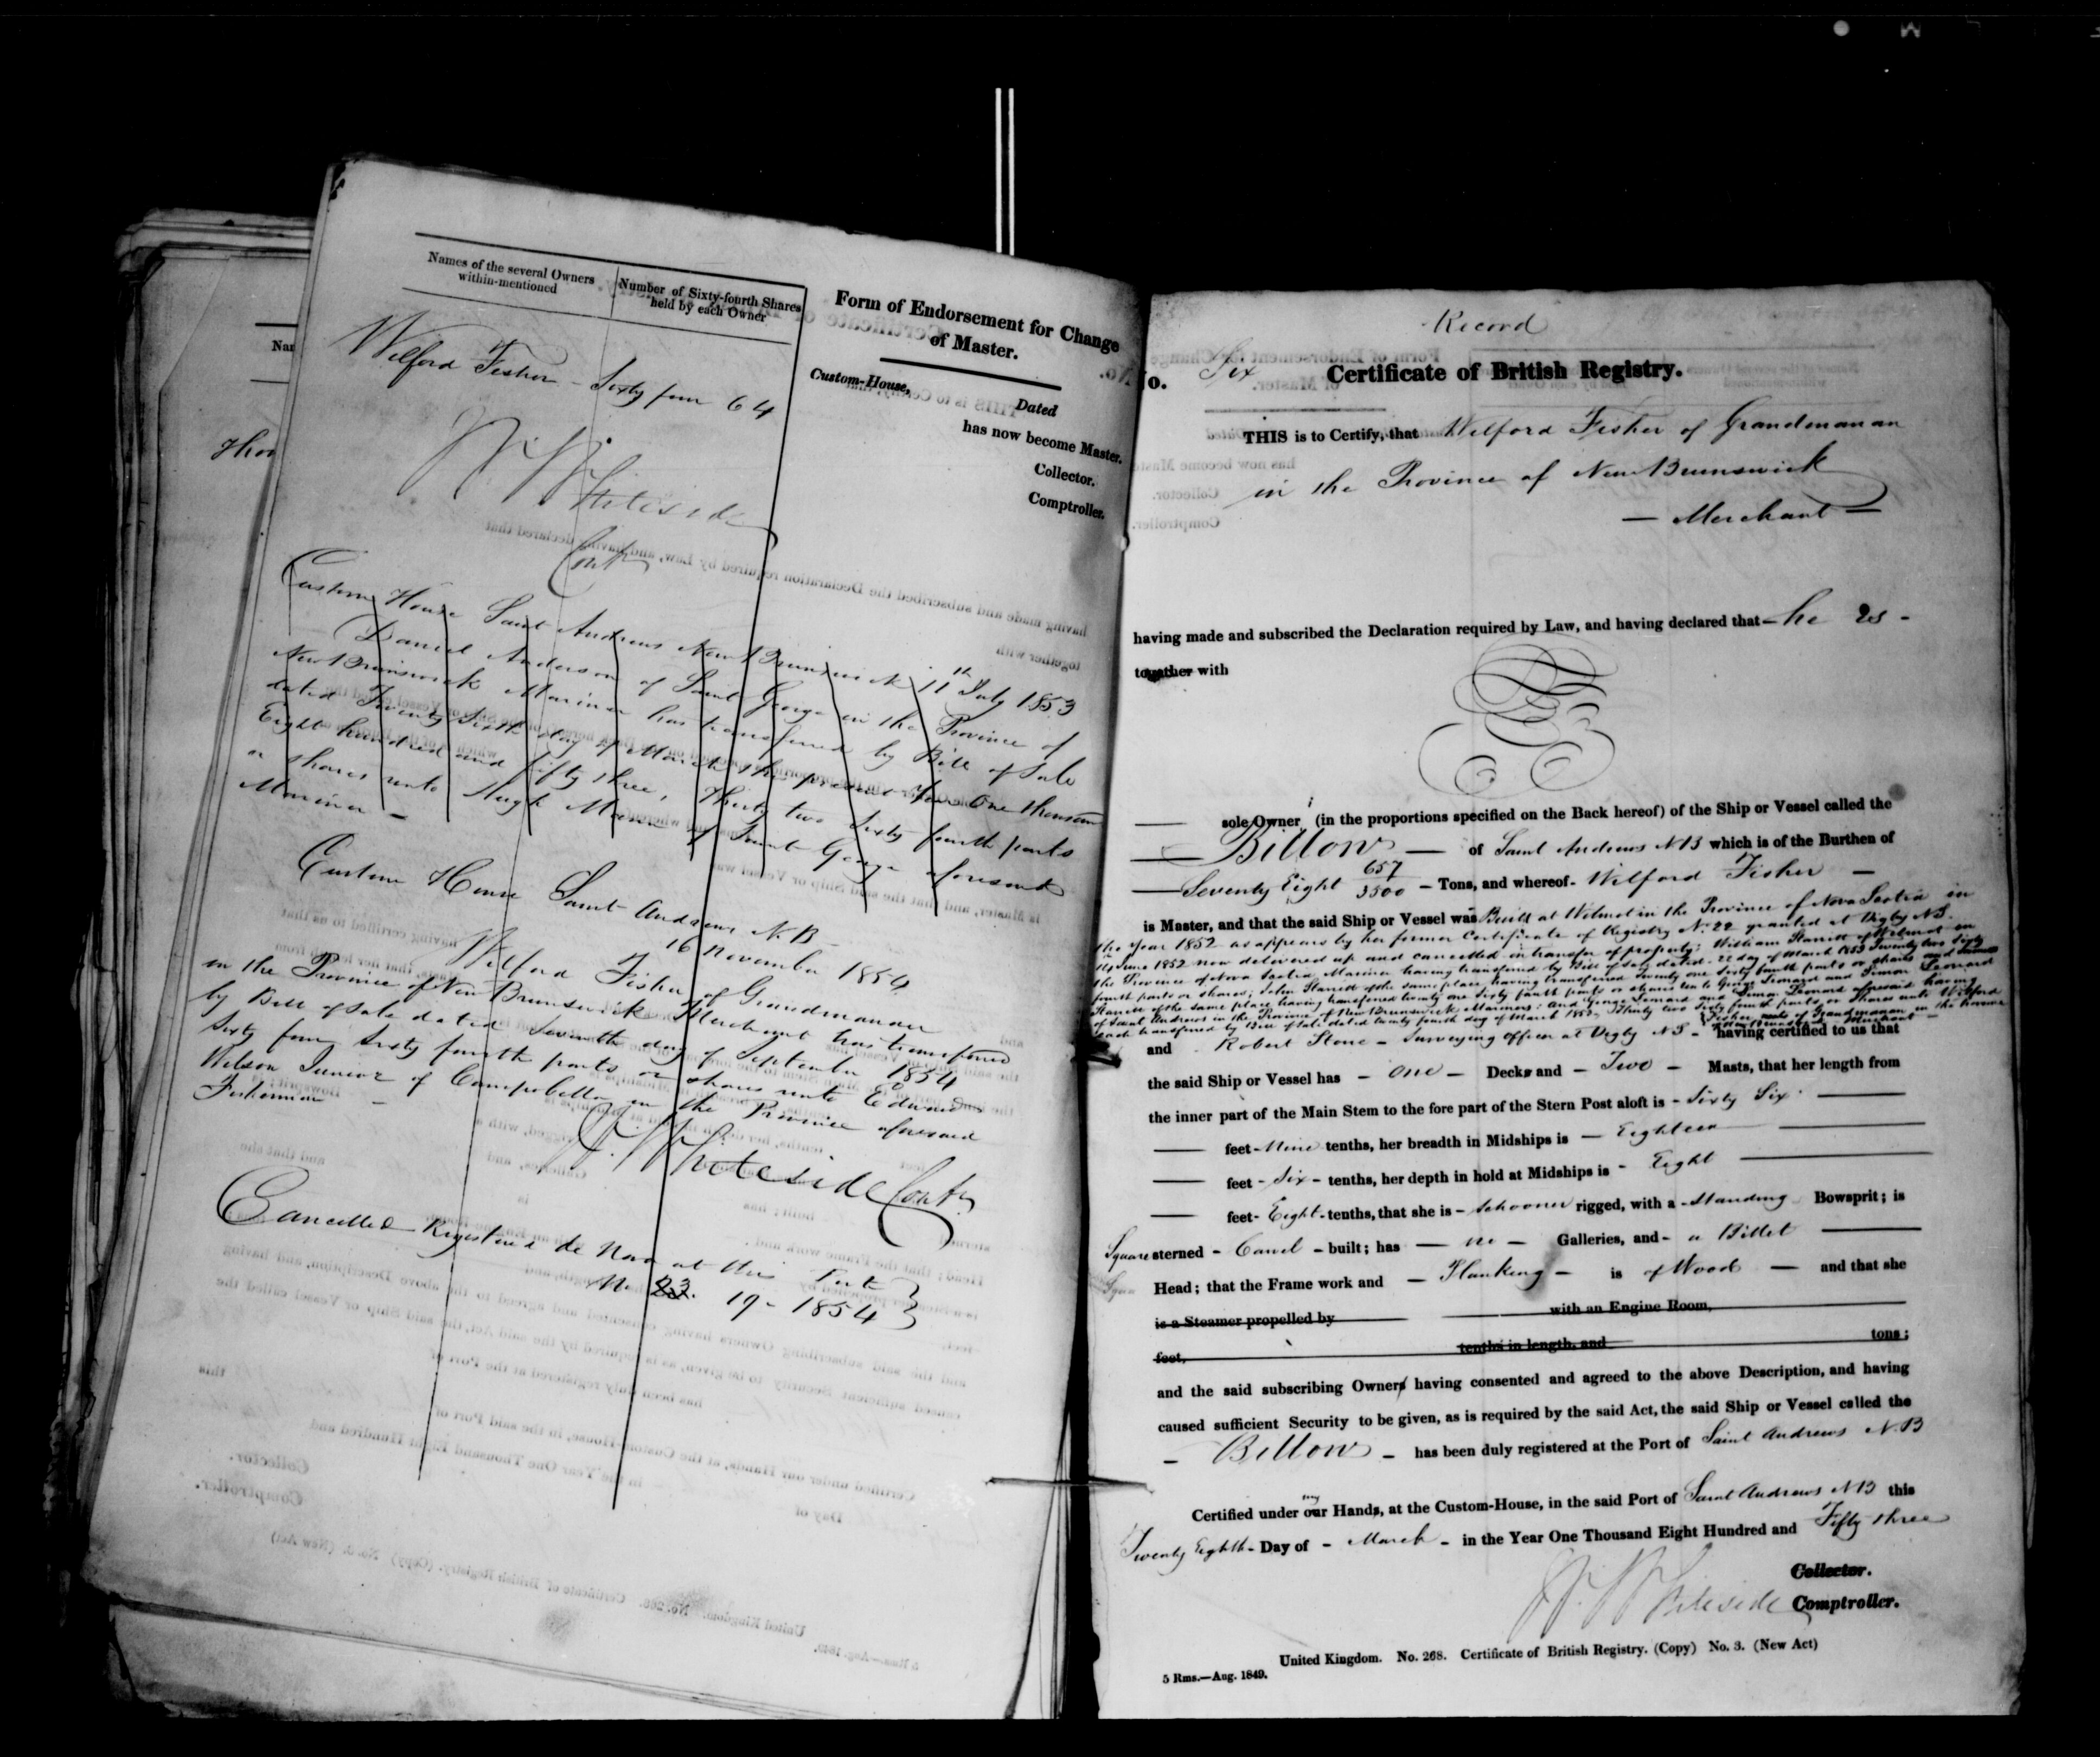 Names of the several Owners within-mentioned
Number of Sixty-fourth Shares held by each Owner
Wilford Fisher - Sixty four 64
W. Whiteside
Contr
Form of Endorsement for Change
of Master.
Custom-House,
Dated
has now become Master.
Collector.
Comptroller.
Custom House Saint Andrews New Brunswick 11th July 1853
Daniel Anderson of Saint George in the Province of
New Brunswick Mariner has transferred by Bill of Sale
dated Twenty Sixth day of March the present Year One thousand
Eight hundred and fifty three, Thirty two Sixty fourth parts
or shares unto Hugh of Saint George aforesaid
Mariner -
Custom House Saint Andrews N.B -
16 November 1854
Wilford Fisher of Grandmanan
in the Province of New Brunswick Merchant has transferred
by Bill of Sale dated Seventh day of September 1854
Sixty four Sixty fourth parts or shares unto Edward
Wilson Junior of Campobello in the Province aforesaid
Fisherman -
W. Whiteside Contr
Cancelled Registered de Novo at this Port
No 19 - 1854
Record
No. Six
Certificate of British Registry.
THIS is to Certify, that Wilford Fisher of Grandmanan
in the Province of New Brunswick
— Merchant —
having made and subscribed the Declaration required by Law, and having declared that - he is -
together with
sole Owner (in the proportions specified on the Back hereof) of the Ship or Vessel called the
Billow — of Saint Andrews N B which is of the Burthen of
Seventy Eight 657/3500 - Tons, and whereof - Wilford Fisher -
is Master, and that the said Ship or Vessel was Built at Wilmot in the Province of Nova Scotia in
the Year 1852 as appears by her former Certificate of Registry No 22 granted at Digby N.S.
14 June 1852 now delivered up and cancelled in transfer of property: William Starritt of Wilmot in
the Province of Nova Scotia Mariner having transferred by Bill of Sale dated 22 day of March 1853 Twenty two Sixty
fourth parts or shares; John Starritt of the same place having transferred Twenty one Sixty fourth parts or shares and
Starritt of the same place having transferred twenty one Sixty fourth parts or shares unto George Leonard and Simon Leonard
of Saint Andrews in the Province of New Brunswick Mariners: And George Leonard and Simon Leonard aforesaid having
each transferred by Bill of Sale dated twenty fourth day of March 1853 Thirty two Sixty fourth parts or shares unto Wilford
Fisher of Grandmanan in the Province
of New Brunswick Merchant -
and Robert Stone - Surveying Officer at Digby N S - having certified to us that
the said Ship or Vessel has - One - Decks and - Two - Masts, that her length from
the inner part of the Main Stem to the fore part of the Stern Post aloft is - Sixty Six
feet - Nine tenths, her breadth in Midships is - Eighteen
feet - Six - tenths, her depth in hold at Midships is - Eight
feet - Eight - tenths, that she is - Schooner rigged, with a - Standing Bowsprit; is
Square sterned - Carvel - built; has — no — Galleries, and - a Billet
Head; that the Frame work and - Planking - is of Wood — and that she
is a Steamer propelled by with an Engine Room,
feet, tenths in length, and tons;
and the said subscribing Owners having consented and agreed to the above Description, and having
caused sufficient Security to be given, as is required by the said Act, the said Ship or Vessel called the
- Billow - has been duly registered at the Port of Saint Andrews N.B
Certified under my our Hands, at the Custom-House, in the said Port of Saint Andrews N B this
Twenty Eighth - Day of - March - in the Year One Thousand Eight Hundred and Fifty three
Collector.
W. Whiteside Comptroller.
United Kingdom. No. 268. Certificate of British Registry. (Copy) No. 3. (New Act)
5 Rms.—Aug. 1849.